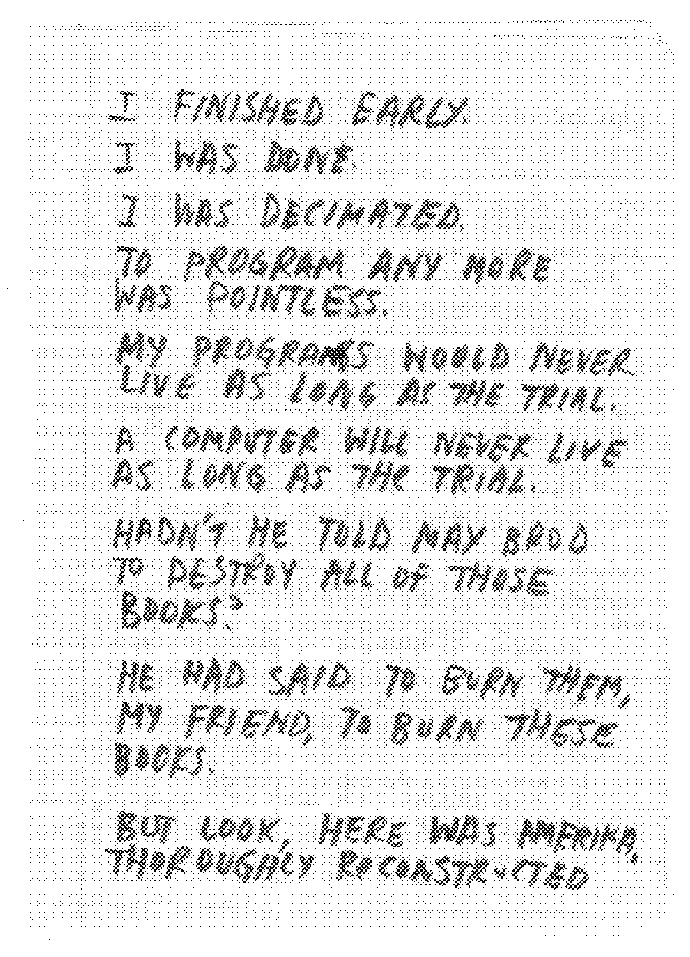 I FINISHED EARLY.
I WAS DONE.
I WAS DECIMATED.
TO PROGRAM ANY MORE
WAS POINTLESS.
MY PROGRAMS WOULD NEVER
LIVE AS LONG AS THE TRIAL.
A COMPUTER WILL NEVER LIVE
AS LONG AS THE TRIAL.
HADN'T HE TOLD MAX BROD
TO DESTROY ALL OF THOSE
BOOKS?
HE HAD SAID TO BURN THEM,
MY FRIEND, TO BURN THESE
BOOKS.
BUT LOOK, HERE WAS AMERIKA,
THOROUGHLY RECONSTRUCTED